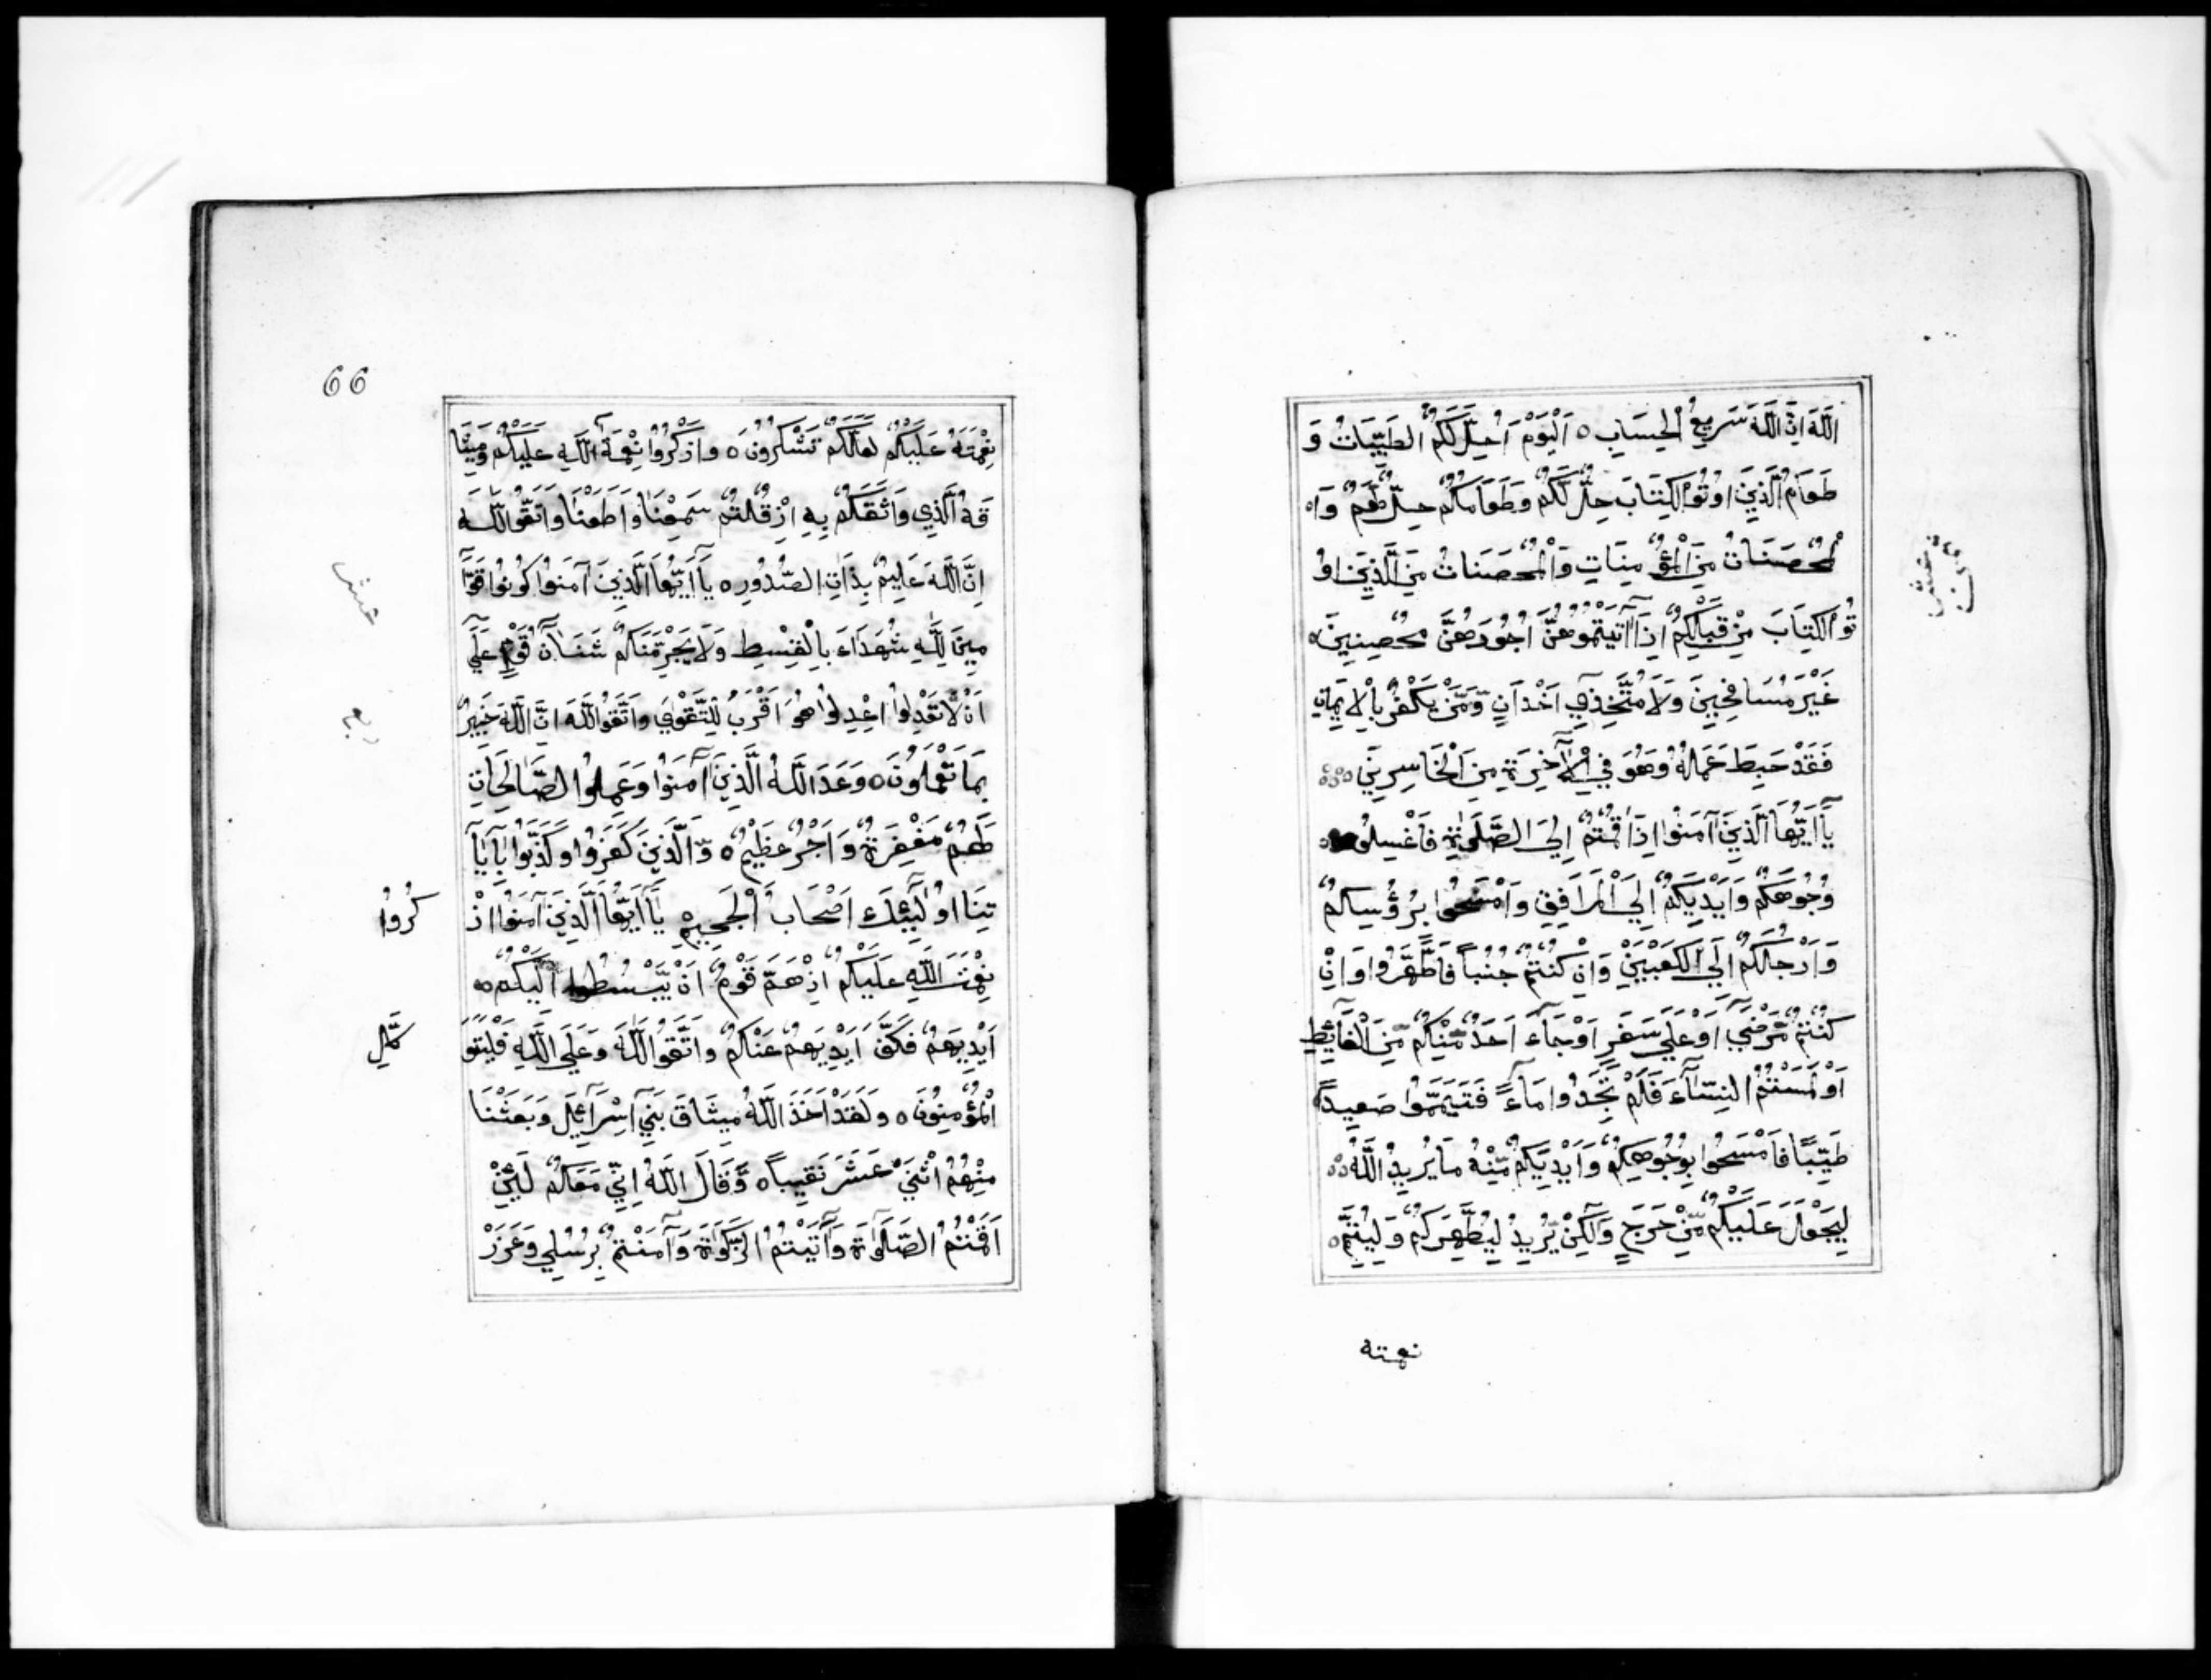 اللَّهَ اِنَّ اللَّهَ سَرِيعُ الْحِسَابِ ٥ اَلْيَوْمَ اُحِلَّ لَكُمُ الطَّيِّبَاتُ وَ
طَعَامُ الَّذِينَ اوُتُوا الْكِتَابَ حِلٌّ لَكُمْ وَطَعَامَاكُمْ حِلٌّ لَهُمْ وَاه
لْمُحْصَنَاتُ مِنَ الْمُؤْمِنَاتِ وَالْمُحْصَنَاتُ مِنَ الَّذِينَ اوُ
تُو الْكِتَابَ مِنْ قَبْلِكُمْ اِذَا آتَيْتُمُوهُنَّ اُجُورَهُنَّ مُحْصِنِينَ ٥
غَيْرَ مُسَافِحِينَ وَلَا مُتَّخِذِي اَخْدَانٍ وَّمَنْ يَكْفُرْ بِالْاِيمَانِ
فَقَدْ حَبِطَ عَمَلُهُ وَهُوَ فِي الْآخِرَةِ مِنَ الْخَاسِرِينَ ٥
يَآ اَيُّهَا الَّذِينَ آمَنُوا اِذَا قُمْتُمْ اِلَي الصَّلَوٰةِ فَاغْسِلُو
وُجُوهَكُمْ وَاَيْدِيَكُمْ اِلَي الْمَرَافِقِ وَامْسَحُوا بِرُؤُسِكُمْ
وَاَرْجُلَكُمْ اِلَي الْكَعْبَيْنِ وَاِنْ كُنْتُمْ جُنُباً فَاطَّهَّرُوا وَاِنْ
كُنْتُمْ مَّرْضَي اَوْ عَلَي سَفَرٍ اَوْ جَآءَ اَحَدٌ مِّنْكُمْ مِّنَ الْغَآئِطِ
اَوْ لَمَسْتُمُ النِّسَآءَ فَلَمْ تَجِدُوا مَآءً فَتَيَمَّمُوا صَعِيداً
طَيِّبًا فَامْسَحُوا بِوُجُوهِكُمْ وَاَيْدِيَكُمْ مِّنْهُ مَا يُرِيدُ اللَّهُ ٥
لِيَجْعَلَ عَلَيْكُمْ مِّنْ حَرَجٍ وَّلَكِنْ يُّرِيدُ لِيُطَهِّرَكُمْ وَلِيُتِمَّ ٥
نعمته
66
نِعْمَتَهُ عَلَيْكُمْ لَعَلَّكُمْ تَشْكُرُونَ ٥ وَاذْكُرُوا نِعْمَةَ اللَّهِ عَلَيْكُمْ وَمِيثَا
قَهُ الَّذِي وَاثَقَكُمْ بِهِ اِذْ قُلْتُمْ سَمِعْنَا وَاَطَعْنَا وَاتَّقُوا اللَّهَ
اِنَّ اللَّهَ عَلِيمٌ بِذَاتِ الصُّدُورِ ٥ يَآ اَيُّهَا الَّذِينَ آمَنُوا كُونُوا قَوَّا
مِينَ لِلَّهِ شُهَدَاءَ بِالْقِسْطِ وَلَا يَجْرِمَنَّكُمْ شَنَآنُ قَوْمٍ عَلَي
اَنْ لَّا تَعْدِلُوا اِعْدِلُوا هُوَ اَقْرَبُ لِلتَّقْوٰي وَاتَّقُوا اللَّهَ اِنَّ اللَّهَ خَبِيرٌ
بِمَا تَعْمَلُونَ ٥ وَعَدَ اللَّهُ الَّذِينَ آمَنُوا وَعَمِلُوا الصَّالِحَاتِ
لَهُمْ مَغْفِرَةٌ وَاَجْرٌ عَظِيمٌ ٥ وَالَّذِينَ كَفَرُوا وَكَذَّبُوا بِآيَا
تِنَا اوُلَئِكَ اَصْحَابُ الْجَحِيمِ ٥ يَآ اَيُّهَا الَّذِينَ آمَنُوا اذْ
كُرُوا
نِعْمَتَ اللَّهِ عَلَيْكُمْ اِذْ هَمَّ قَوْمٌ اَنْ يَّبْسُطُوا اِلَيْكُمْ ٥
اَيْدِيَهُمْ فَكَفَّ اَيْدِيَهُمْ عَنْكُمْ وَاتَّقُوا اللَّهَ وَعَلَي اللَّهِ فَلْيَتَوَ
كَّلِ
الْمُؤْمِنُونَ ٥ وَلَقَدْ اَخَذَ اللَّهُ مِيثَاقَ بَنِي اِسْرَآئِيلَ وَبَعَثْنَا
مِنْهُمُ اثْنَيْ عَشَرَ نَقِيباً ٥ وَّقَالَ اللَّهُ اِنِّي مَعَكُمْ لَئِنْ
اَقَمْتُمُ الصَّلَوٰةَ وَآتَيْتُمُ الزَّكَوٰةَ وَآمَنْتُمْ بِرُسُلِي وَعَزَرْ